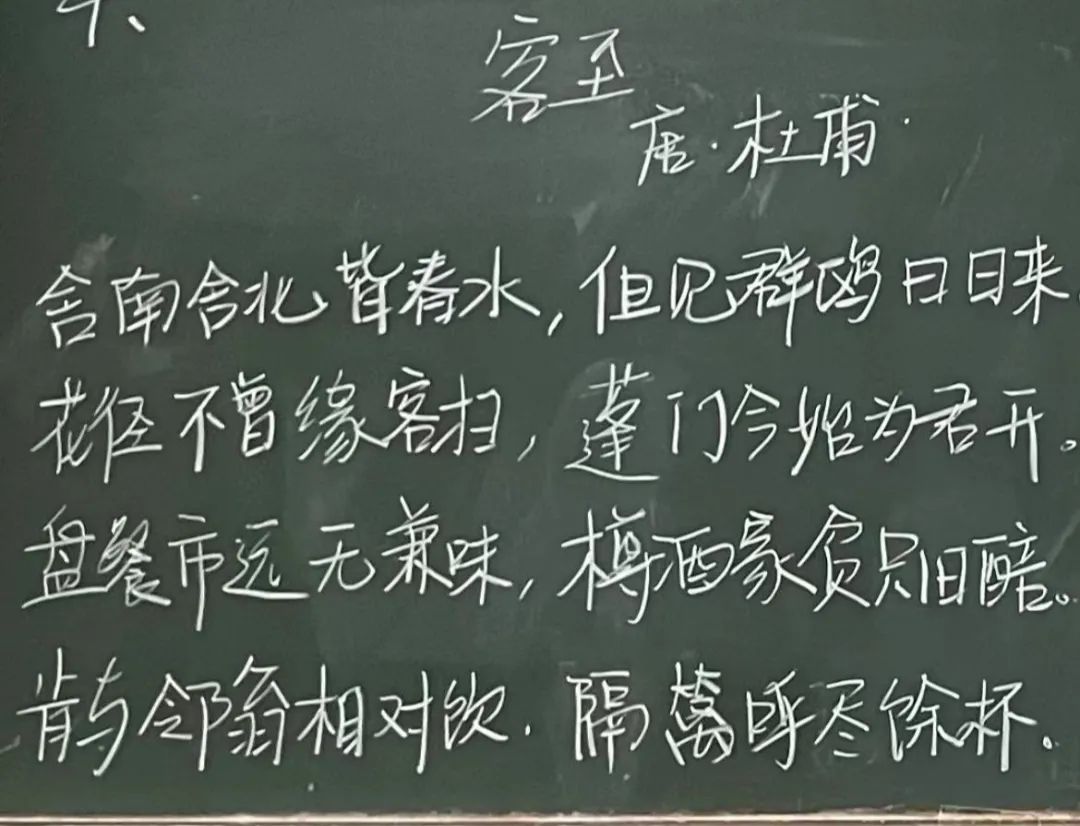 客至
唐·杜甫·
舍南舍北皆春水,但见群鸥日日来
花径不曾缘客扫,蓬门今始为君开。
盘餐市远无兼味,樽酒家贫只旧醅。
肯与邻翁相对饮.隔篱呼尽馀杯.